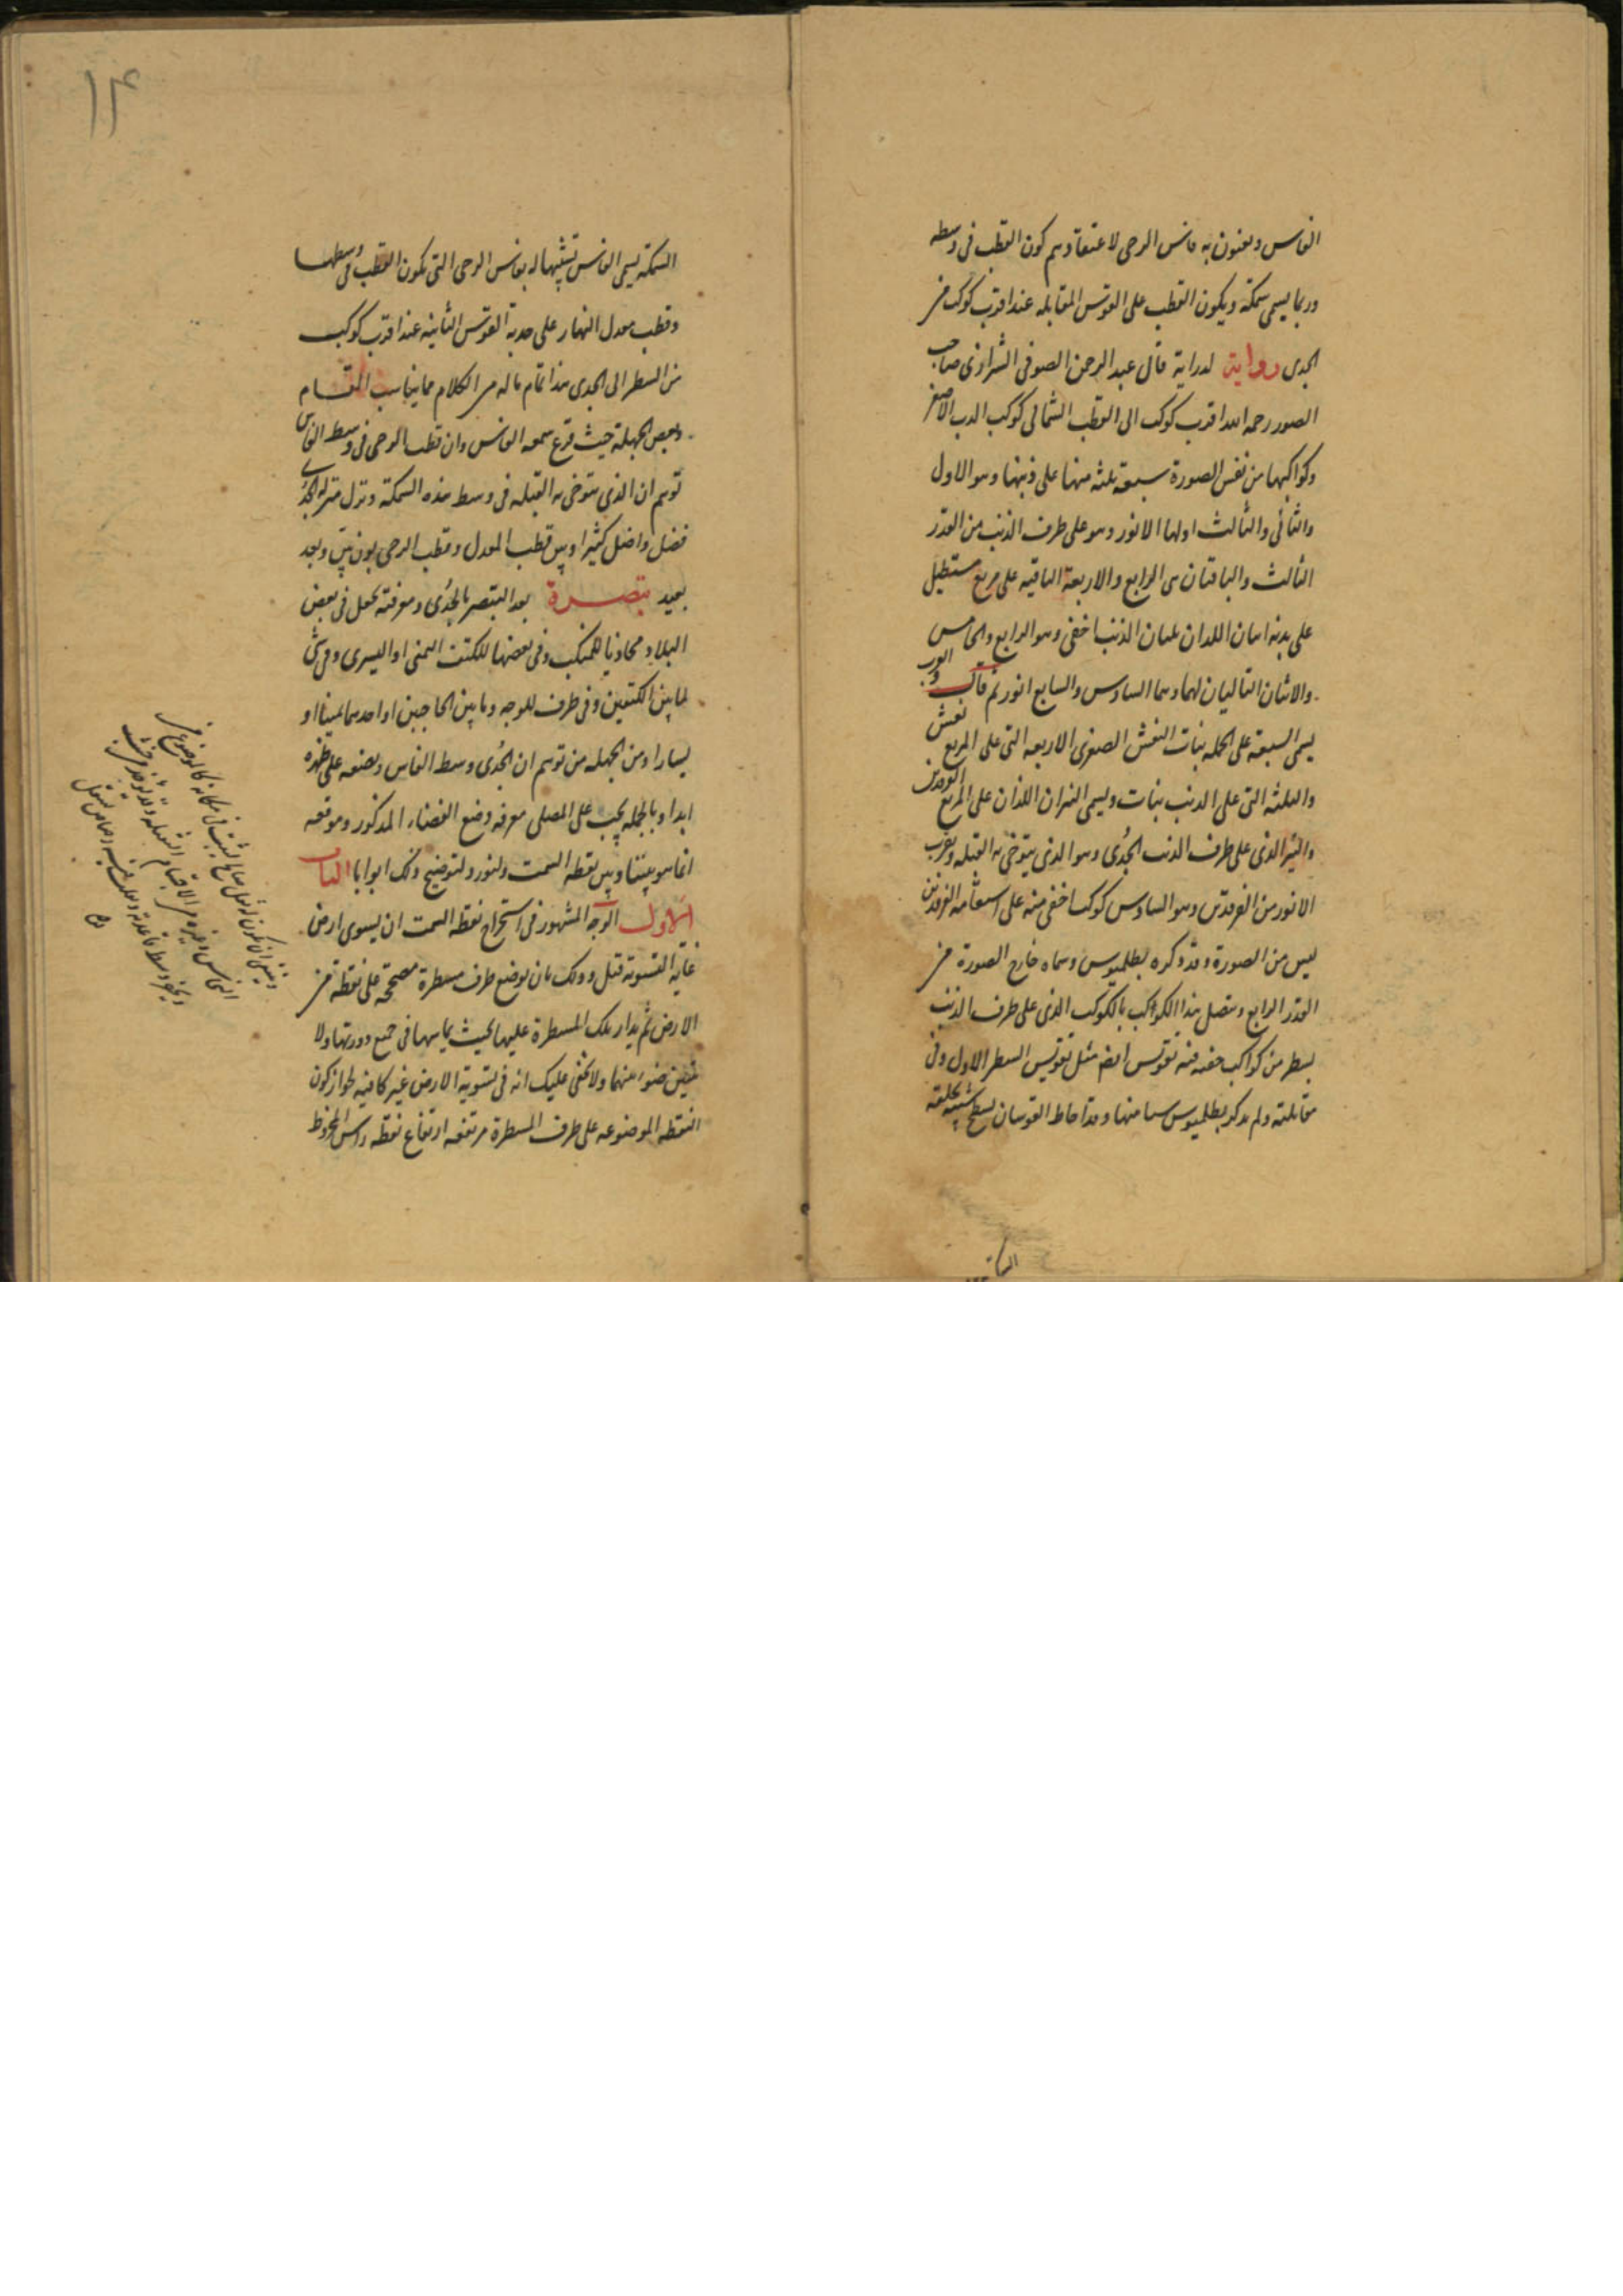 الفاس ويعنون به فاس الرحى لاعتقادهم كون القطب فى وسطه
وربما يسمى سمكة ويكون القطب على القوس المقابله عند اقرب كوكب من
الجدى رواية لدراية قال عبد الرحمن الصوفى الشرازى صاحب
الصور رحمه الله اقرب كوكب الى القطب الشمالى كوكب الدب الاصغر
وكواكبها من نفس الصورة سبعة ثلثه منها على ذنبها وهو الاول
والثانى والثالث اولها الانور وهو على طرف الذنب من القدر
الثالث والباقتان من الرابع والاربعة الباقيه على مربع مستطيل
على بدنه اسان اللدان يليان الذنب اخفى وهو الرابع والخامس
والاثنان التاليان لهما وهما السادس والسابع انور ثم قال والعرب
يسمى السبعة على الجمله بنات النعش الصغرى الاربعه التى على المربع نعش
والثلثه التى على الذنب بنات ويسمى النيران اللذان على المربع الفرقدين
والنير الذى على طرف الذنب الجدى وهو الذى يتوخى به القبله وبقرب
الانور من الفرقدين وهو السادس كوكب اخفى منه على استقامة الفرقدين
ليس من الصورة وقد ذكره بطلميوس وسماه خارج الصورة من
القدر الرابع ويتصل بهذا الكواكب بالكوكب الذى على طرف الذنب
بسطر من كواكب خفيه فيه تقوس ايضا مثل تقويس السطر الاول وفى
مقابلته ولم يذكر بطلميوس شيا منها وقد احاط القوسان بسطح شبيه بخلقة
السمكة
السمكة يسمى الفاس تشبيها له بفاس الرحى التى تكون القطب فى وسطها
وقطب معدل النهار على حدبة القوس الثانيه عند اقرب كوكب
من السطر الى الجدى هذا تمام ماله من الكلام مما يناسب المقام
وبعض الجهلة حيث قرع سمعه الفاس وان قطب الرحى فى وسط الفاس
توهم ان الذى يتوخى به القبله فى وسط هذه السمكة ونزل منزله الجدى
فضل واضل كثيرا وبين قطب المعدل وقطب الرحى بون بين وبعد
بعيد تبصرة بعد التبصر بالجدى ومعرفته يجعل فى بعض
البلاد محاذيا للمنكب وفى بعضها للكتف اليمنى او اليسرى وفى شئ
لما بين الكتفين وفى طرف للوجه وما بين الحاجبين او احدهما يمينا او
يسارا ومن الجهله من توهم ان الجدى وسط الفاس ويضعه على ظهره
ابدا وبالجمله يجب على المصلى معرفه وضع القضاء المذكور وموقعه
انما هو بيننا وبين نقطه السمت ولنورد لتوضيح ذلك ابوابا الباب
الاول الوجه المشهور فى استخراج نقطه السمت ان يسوى ارض
غايه التسوية قيل وذلك بان يوضع طرف مسطرة مصححة على نقطة من
الارض ثم يدار تلك المسطرة عليها بحيث يماسها فى جميع دورتها ولا
يتبين ضوء بينهما ولا يخفى عليك انه فى تسوية الارض غير كافيه لجواز كون
النقطه الموضوعه على طرف المسطرة مرتفعه ارتفاع نقطه راس المخروط
وينبغى ان يكون ثقيل صالح لثبت فى مكانه كالموضوع من
النحاس وغيره من الاجسام الثقيله وقد يوخذ من خشب
ويحفر وسط قاعدته ويملا فيه رصاص ليثقل
١٤